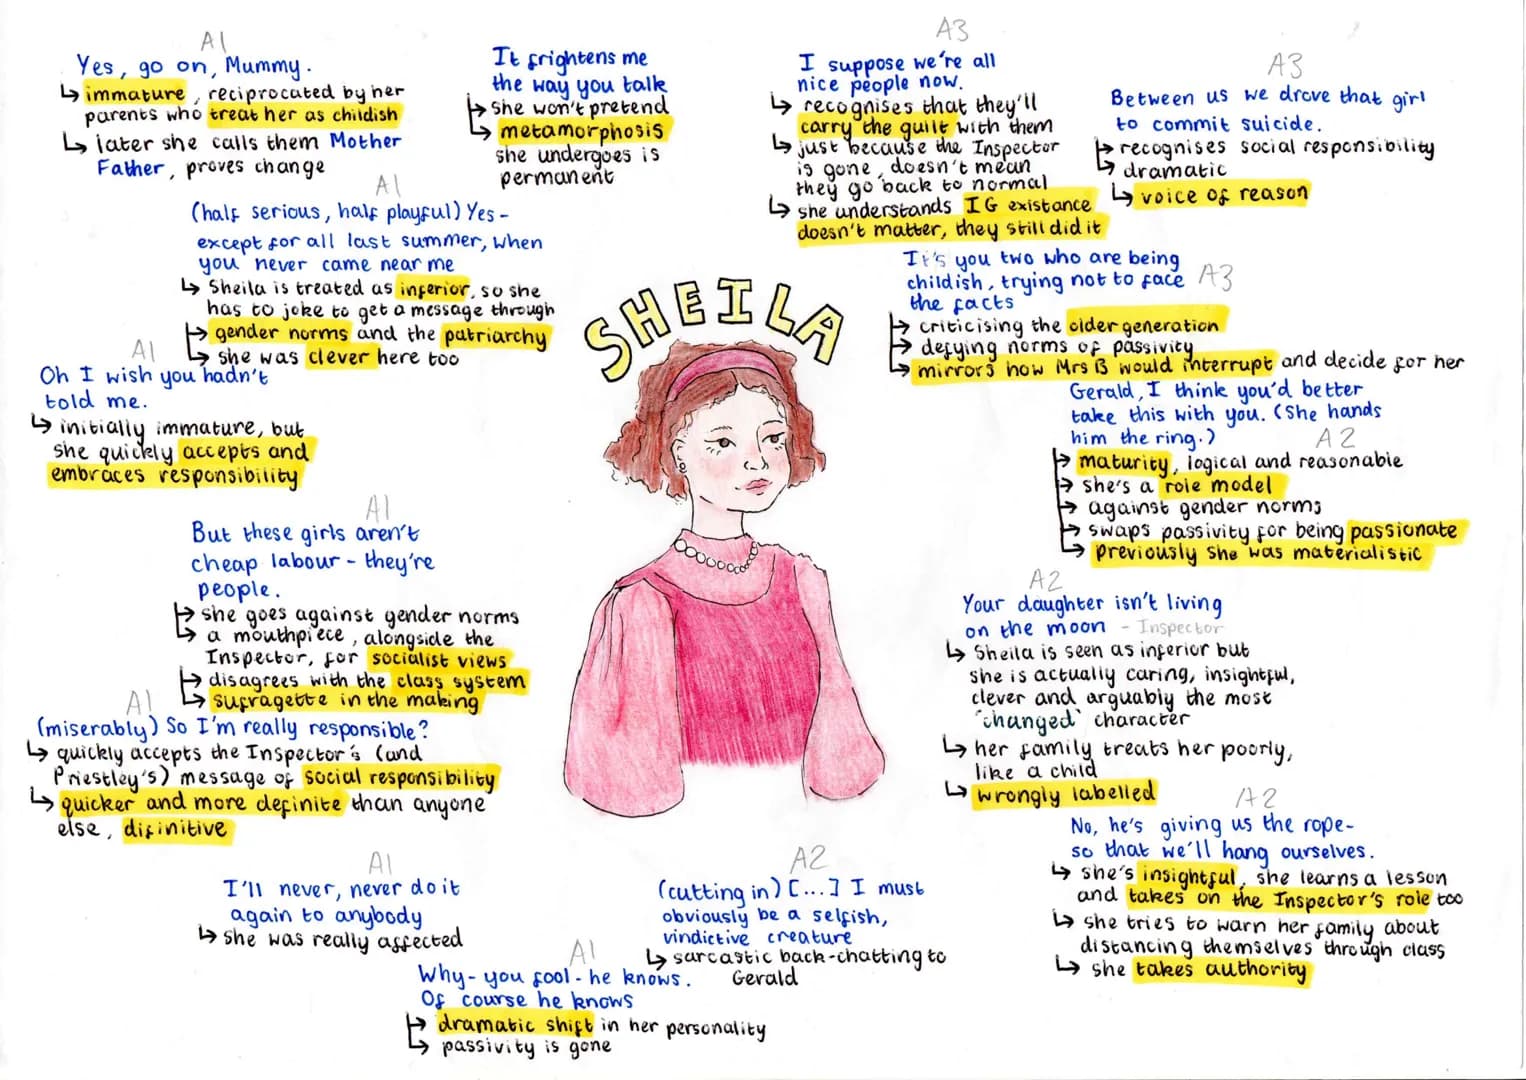 A1
Yes, go on, Mummy.
↳ immature, reciprocated by her
parents who treat her as childish
↳ later she calls them Mother
Father, proves change
It frightens me
the way you talk
↳ she won't pretend
↳ metamorphosis
she undergoes is
permanent
A3
I suppose we're all
nice people now.
↳ recognises that they'll
carry the guilt with them
↳ just because the Inspector
is gone, doesn't mean
they go back to normal
↳ she understands IG existance
doesn't matter, they still did it
A3
Between us we drove that girl
to commit suicide.
↳ recognises social responsibility
↳ dramatic
↳ voice of reason
A1
(half serious, half playful) Yes -
except for all last summer, when
you never came near me
↳ Sheila is treated as inferior, so she
has to joke to get a message through
↳ gender norms and the patriarchy
↳ she was clever here too
A1
Oh I wish you hadn't
told me.
↳ initially immature, but
she quickly accepts and
embraces responsibility
A1
But these girls aren't
cheap labour - they're
people.
↳ she goes against gender norms
↳ a mouthpiece, alongside the
Inspector, for socialist views
↳ disagrees with the class system
↳ sufragette in the making
A1
(miserably) So I'm really responsible?
↳ quickly accepts the Inspector's (and
Priestley's) message of social responsibility
↳ quicker and more definite than anyone
else, difinitive
A1
I'll never, never do it
again to anybody
↳ she was really affected
SHEILA
It's you two who are being
childish, trying not to face A3
the facts
↳ criticising the older generation
↳ defying norms of passivity
↳ mirrors how Mrs B would interrupt and decide for her
Gerald, I think you'd better
take this with you. (She hands
him the ring.) A2
↳ maturity, logical and reasonable
↳ she's a role model
↳ against gender norms
↳ swaps passivity for being passionate
↳ previously she was materialistic
A2
Your daughter isn't living
on the moon - Inspector
↳ Sheila is seen as inferior but
she is actually caring, insightful,
clever and arguably the most
'changed' character
↳ her family treats her poorly,
like a child
↳ wrongly labelled
A2
No, he's giving us the rope-
so that we'll hang ourselves.
↳ she's insightful, she learns a lesson
and takes on the Inspector's role too
↳ she tries to warn her family about
distancing themselves through class
↳ she takes authority
A2
(cutting in) [...] I must
obviously be a selfish,
vindictive creature
↳ sarcastic back-chatting to
Gerald
A1
Why- you fool - he knows.
Of course he knows
↳ dramatic shift in her personality
↳ passivity is gone